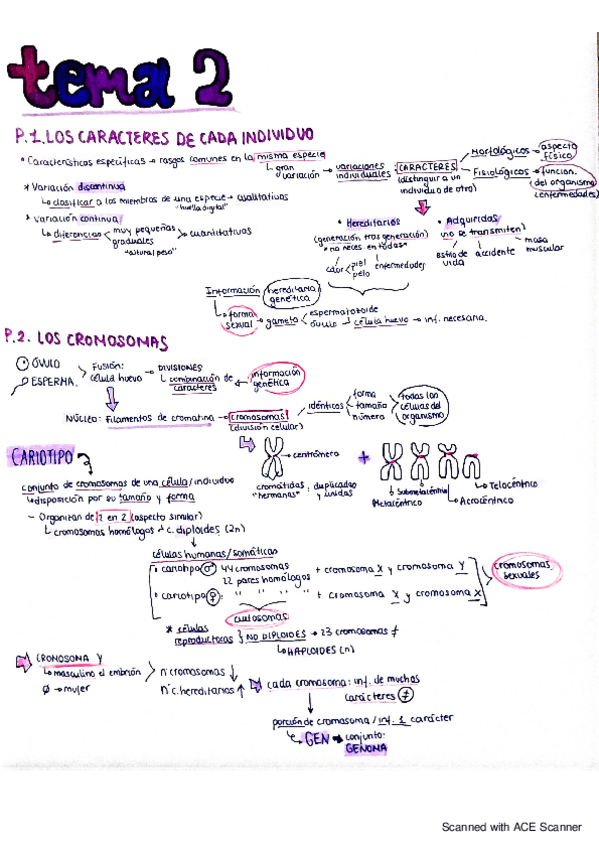 tema 2
P.1. LOS CARACTERES DE CADA INDIVIDUO
• Características específicas → rasgos comunes en la misma especie
↳ gran variación → variaciones individuales
CARACTERES (distinguir a un individuo de otro)
Morfológicos → aspecto físico
Fisiológicos → funcion. (del organismo enfermedades)
* Variación discontinua
↳ clasificar a los miembros de una especie → cualitativos
"huella digital"
* Variación continua
↳ diferencias muy pequeñas graduales → cuantitativas
"altura/peso"
• Hereditarios
(generación tras generación)
"no neces. en todas"
color piel pelo
enfermedades
• Adquiridos
(no se transmiten)
estilo de vida
accidente
masa muscular
Información hereditaria genética
↳ forma sexual → gameto
espermatozoide
óvulo
célula huevo → inf. necesaria.
P.2. LOS CROMOSOMAS
ÓVULO
ESPERMA.
Fusión: célula huevo → DIVISIONES
↳ combinación de caracteres ← información genética
NÚCLEO: Filamentos de cromatina → cromosomas (división celular)
idénticos
forma
tamaño
número
todas las células del organismo
centrómero
cromátidas "hermanas" : duplicadas y unidas
+
Metacéntrico
Submetacéntrico
Acrocéntrico
Telocéntrico
CARIOTIPO
conjunto de cromosomas de una célula/individuo
↳ disposición por su tamaño y forma
- Organizan de 2 en 2 (aspecto similar)
↳ cromosomas homólogos → c. diploides (2n)
células humanas/somáticas
• cariotipo ♂ 44 cromosomas + cromosoma X y cromosoma Y
22 pares homólogos
• cariotipo ♀ : " " " " + cromosoma X y cromosoma X
cromosomas sexuales
autosomas
* células reproductoras } NO DIPLOIDES → 23 cromosomas ≠
↳ HAPLOIDES (n)
CROMOSOMA Y
↳ masculino el embrión
Ø → mujer
nº cromosomas ↓
nº c. hereditarios ↑
cada cromosoma: inf. de muchos carácteres ≠
porción de cromosoma / inf. 1 carácter
↳ GEN → conjunto: GENOMA
Scanned with ACE Scanner